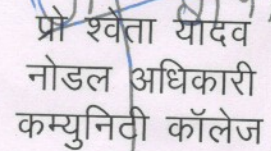 प्रो श्वेता यादव
नोडल अधिकारी
कम्युनिटी कॉलेज